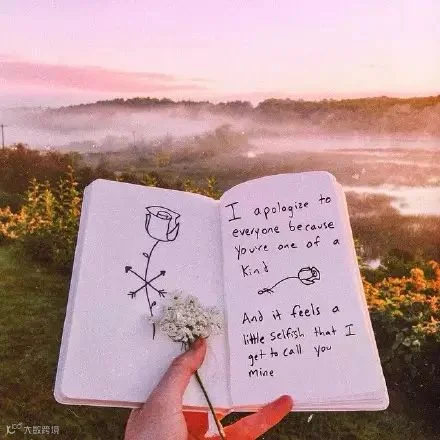 I apologize to
everyone because
you're one of a
kind
And it feels a
little selfish that I
get to call you
mine
大数跨境